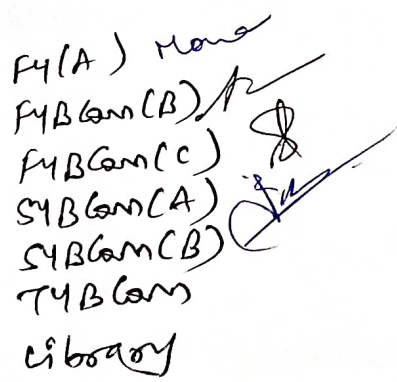 FY(A) Mona
FYBCom(B)
FYBCom(C)
SYBCom(A)
SYBCom(B)
TYBCom
Library